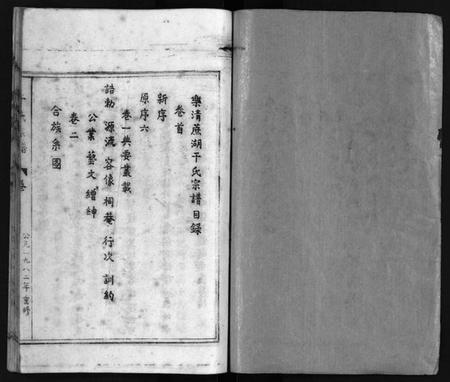 樂清蔗湖干氏宗譜目錄
卷首
新序
原序六
卷一典要叢載
誥勅 源流 容像 祠菴 行次 訓約
公業 藝文 縉紳
卷二
合族系圖
公元一九八二年重修